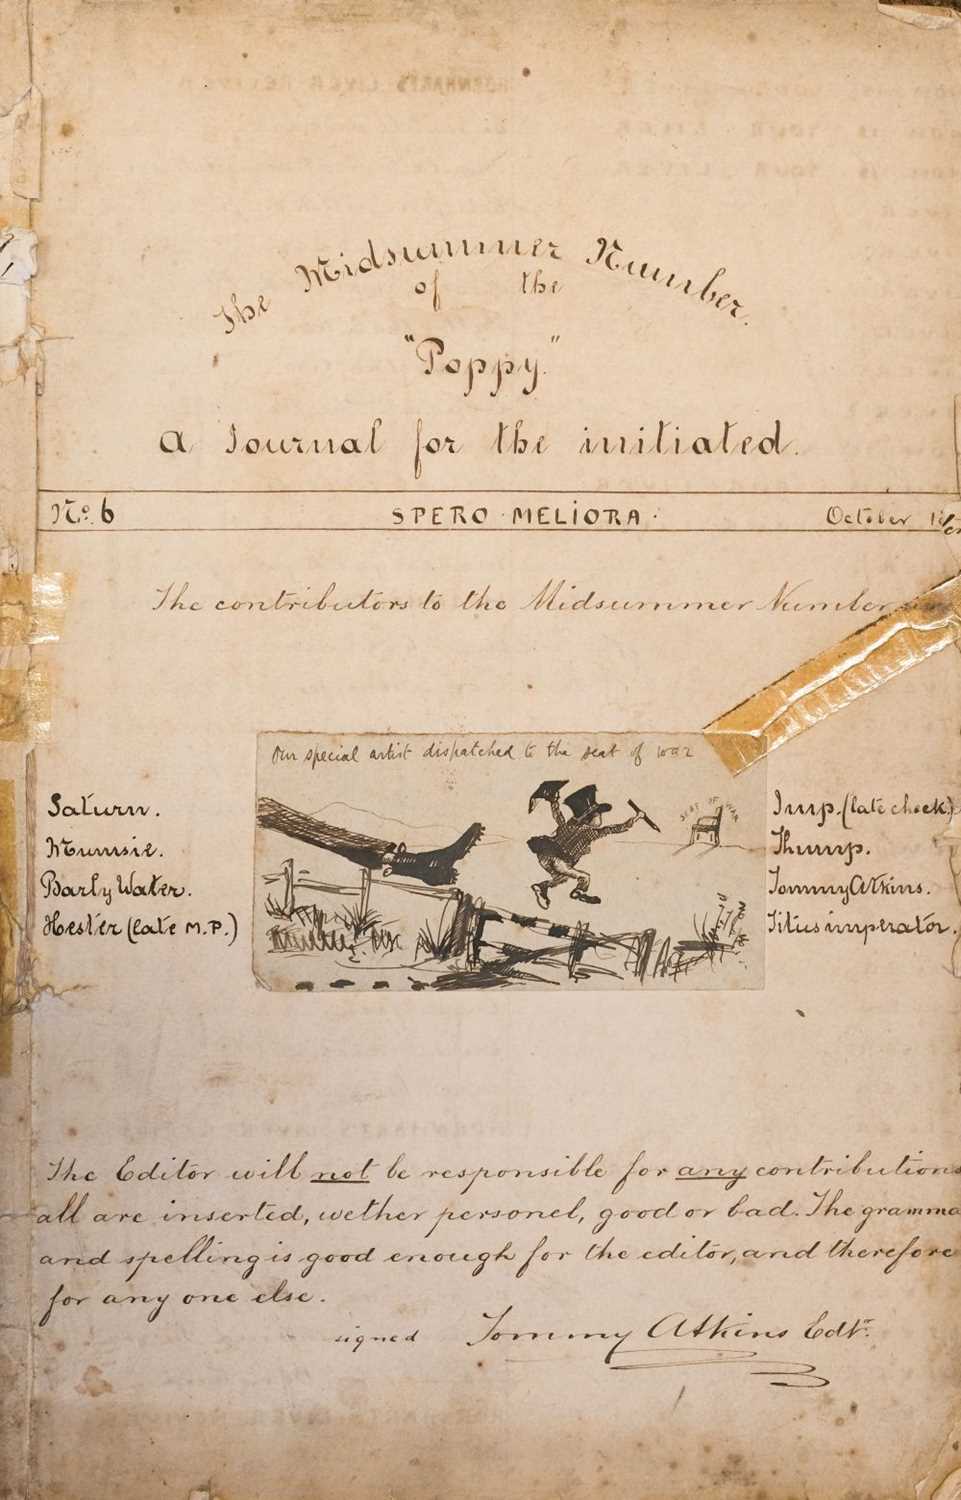 The Midsummer Number.
of the
"Poppy".
A Journal for the initiated.
No. 6 SPERO · MELIORA · October
The contributors to the Midsummer Number
Our special artist dispatched to the seat of war
SEAT OF WAR
Saturn.
Mumsie.
Barly Water.
Hester (late M.P.)
Imp. (late cheek)
Thump.
Tommy Atkins.
Titus imperator.
The Editor will not be responsible for any contributions
all are inserted, wether personel, good or bad. The gramma
and spelling is good enough for the editor, and therefore
for any one else.
signed Tommy Atkins Edtr.